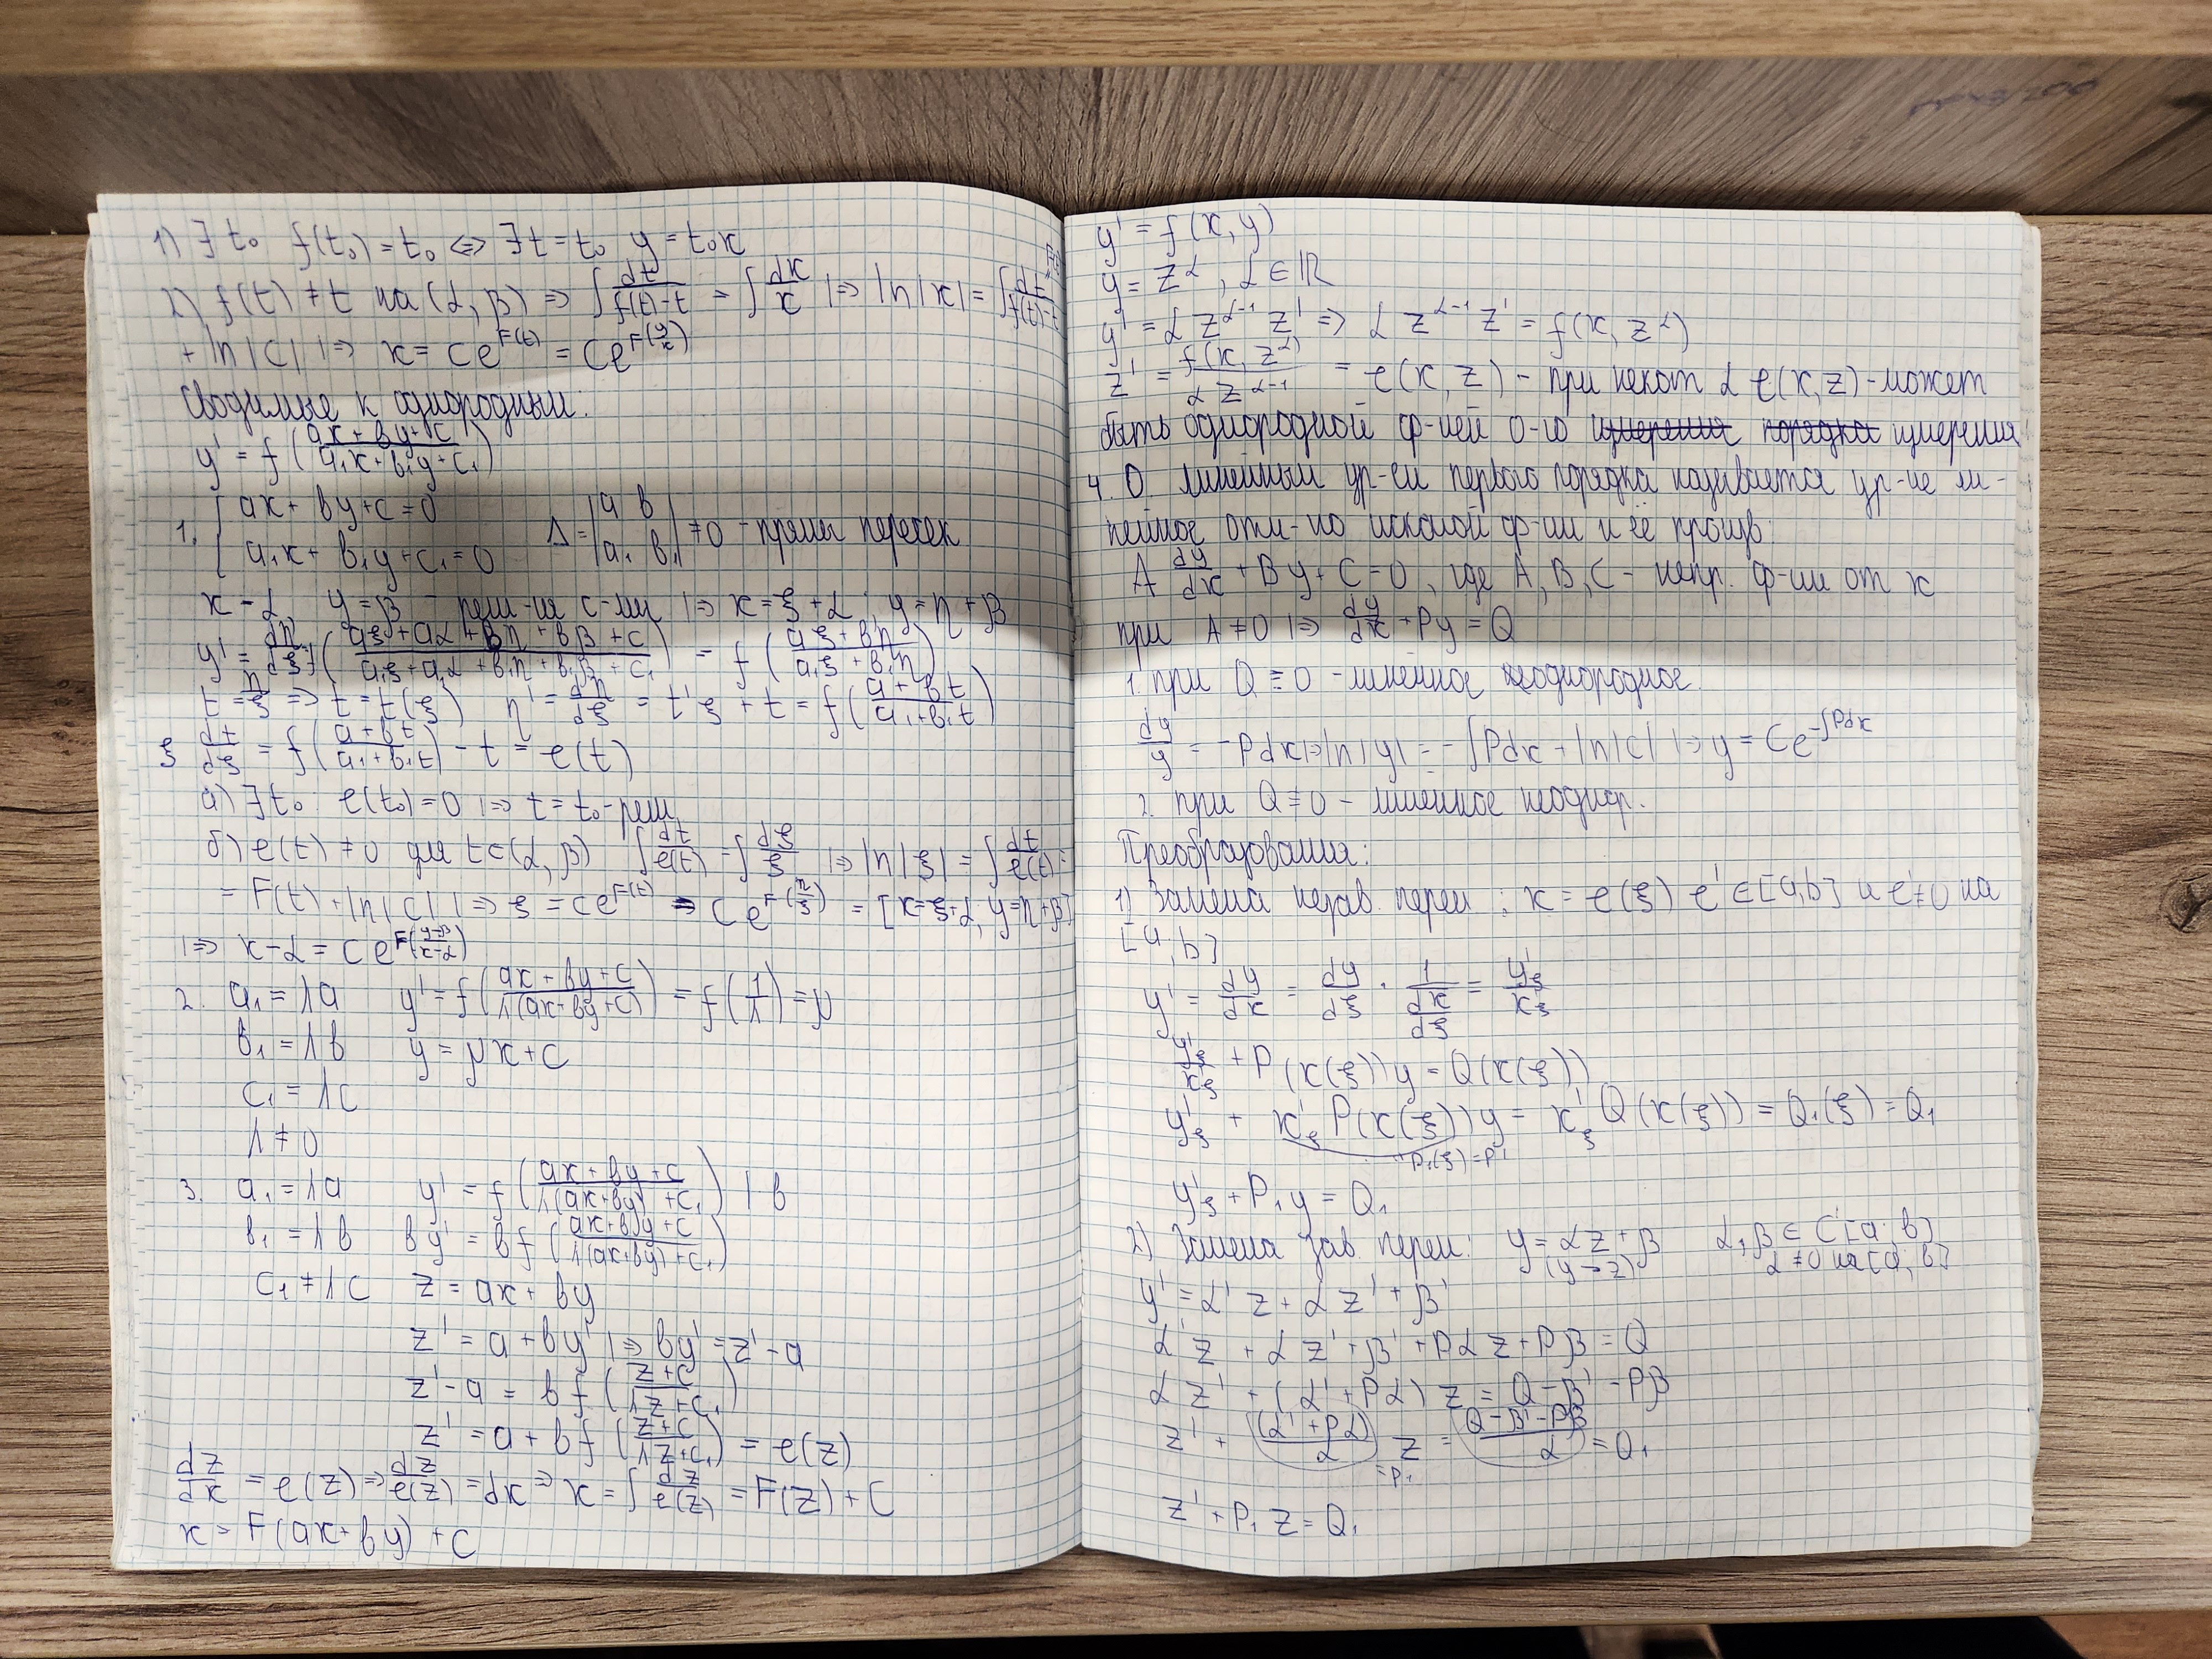 1) ∃ t₀ f(t₀) = t₀ <=> ∃ t = t₀ y = t₀x
2) f(t) ≠ t на (α, β) => ∫ dt/(f(t)-t) = ∫ dx/x |=> ln|x| = ∫ dt/(f(t)-t)
+ ln|C| |=> x = Ce^{F(t)} = Ce^{F(y/x)}
Сводимые к однородным:
y' = f((ax+by+c)/(a₁x+b₁y+c₁))
1. { ax+by+c=0
a₁x+b₁y+c₁=0 Δ = |a b; a₁ b₁| ≠ 0 - прямы пересек
x = α, y = β - реш-ие с-мы |=> x = ξ+α; y = η+β
y' = dη/dξ = f((aξ+aα+bη+bβ+c)/(a₁ξ+a₁α+b₁η+b₁β+c₁)) = f((aξ+bη)/(a₁ξ+b₁η))
t = η/ξ => t = t(ξ) η' = dη/dξ = t'ξ + t = f((a+bt)/(a₁+b₁t))
ξ dt/dξ = f((a+bt)/(a₁+b₁t)) - t = φ(t)
а) ∃ t₀: φ(t₀) = 0 |=> t = t₀ - реш
б) φ(t) ≠ 0 для t∈(α, β) ∫ dt/φ(t) = ∫ dξ/ξ |=> ln|ξ| = ∫ dt/φ(t) =
= F(t) + ln|C| |=> ξ = Ce^{F(t)} = Ce^{F(η/ξ)} = [x=ξ+α, y=η+β]
|=> x-α = Ce^{F((y-β)/(x-α))}
2. a₁ = λa y' = f((ax+by+c)/(λ(ax+by+c))) = f(1/λ) = μ
b₁ = λb y = μx+C
c₁ = λc
λ ≠ 0
3. a₁ = λa y' = f((ax+by+c)/(λ(ax+by)+c₁)) | b
b₁ = λb by' = bf((ax+by+c)/(λ(ax+by)+c₁))
c₁ ≠ λc z = ax+by
z' = a+by' |=> by' = z'-a
z'-a = bf((z+c)/(λz+c₁))
z' = a+bf((z+c)/(λz+c₁)) = φ(z)
dz/dx = φ(z) => dz/φ(z) = dx => x = ∫ dz/φ(z) = F(z) + C
x = F(ax+by) + C
y' = f(x, y)
y = z^α, α ∈ ℝ
y' = αz^{α-1}z' => αz^{α-1}z' = f(x, z^α)
z' = f(x, z^α)/(αz^{α-1}) = φ(x, z) - при некот α φ(x,z) - может
быть однородной ф-ией 0-го измерения порядка измерения
4. О. линейным ур-ем первого порядка называется ур-ие ли-
нейное отн-но искомой ф-ии и её произв.
A dy/dx + By + C = 0, где A, B, C - непр. ф-ии от x
при A ≠ 0 |=> dy/dx + Py = Q
1. при Q ≡ 0 - линейное однородное.
dy/y = -Pdx |=> ln|y| = -∫Pdx + ln|C| |=> y = Ce^{-∫Pdx}
2. при Q ≢ 0 - линейное неоднор.
Преобразования:
1) Замена незав. перем: x = φ(ξ) φ' ∈ [a,b] и φ' ≠ 0 на
[a,b]
y' = dy/dx = dy/dξ · 1/(dx/dξ) = y'ξ/x'ξ
y'ξ/x'ξ + P(x(ξ))y = Q(x(ξ))
y'ξ + x'ξ P(x(ξ))y = x'ξ Q(x(ξ)) = Q₁(ξ) = Q₁
=P₁(ξ)=P₁
y'ξ + P₁y = Q₁
2) Замена зав. перем: y = αz + β α, β ∈ C'[a; b]
(y→z) α ≠ 0 на [a; b]
y' = α'z + αz' + β'
α'z + αz' + β' + Pαz + Pβ = Q
αz' + (α'+Pα)z = Q - β' - Pβ
z' + (α'+Pα)/α z = (Q-β'-Pβ)/α = Q₁
=P₁
z' + P₁z = Q₁